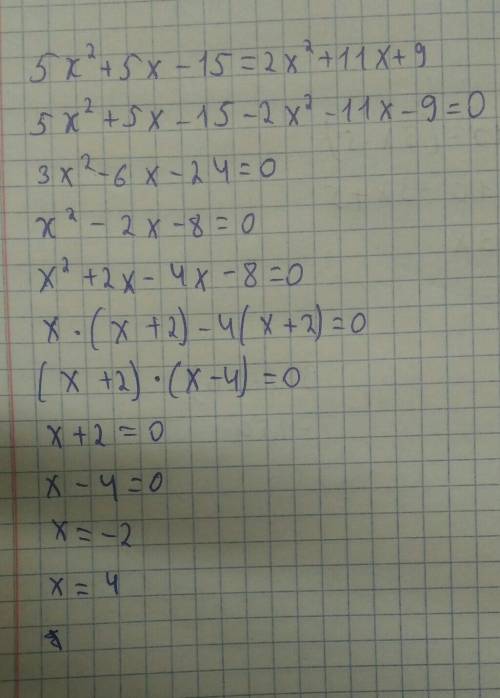 5x²+5x-15=2x²+11x+9
5x²+5x-15-2x²-11x-9=0
3x²-6x-24=0
x²-2x-8=0
x²+2x-4x-8=0
x·(x+2)-4(x+2)=0
(x+2)·(x-4)=0
x+2=0
x-4=0
x=-2
x=4